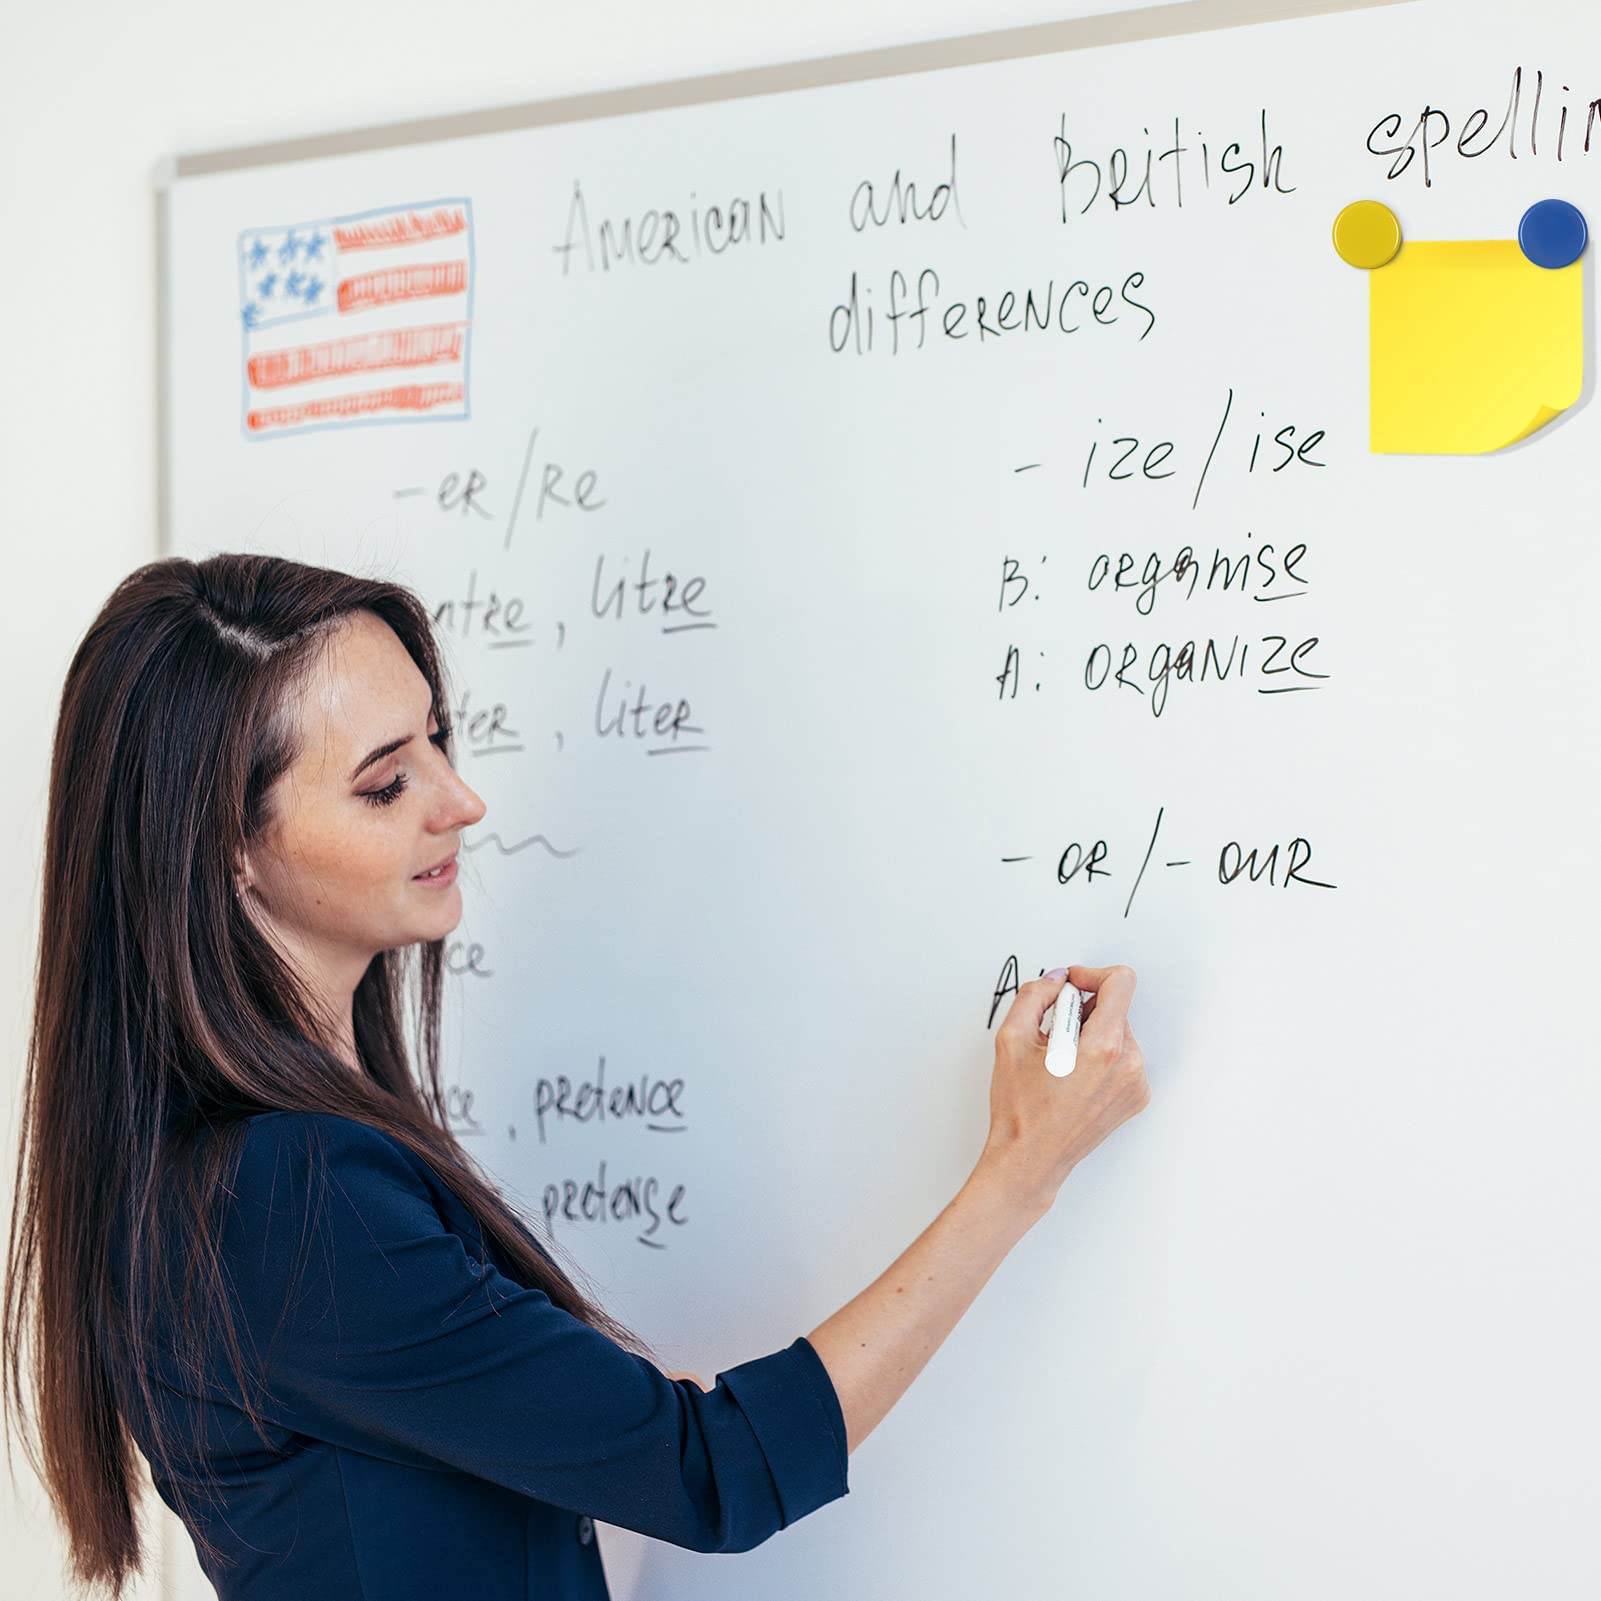 American and British spellin
differences
-er/re
ntre, litre
ter, liter
ce
ce, pretence
pretense
- ize/ise
B: organise
A: organize
- or/- our
A: